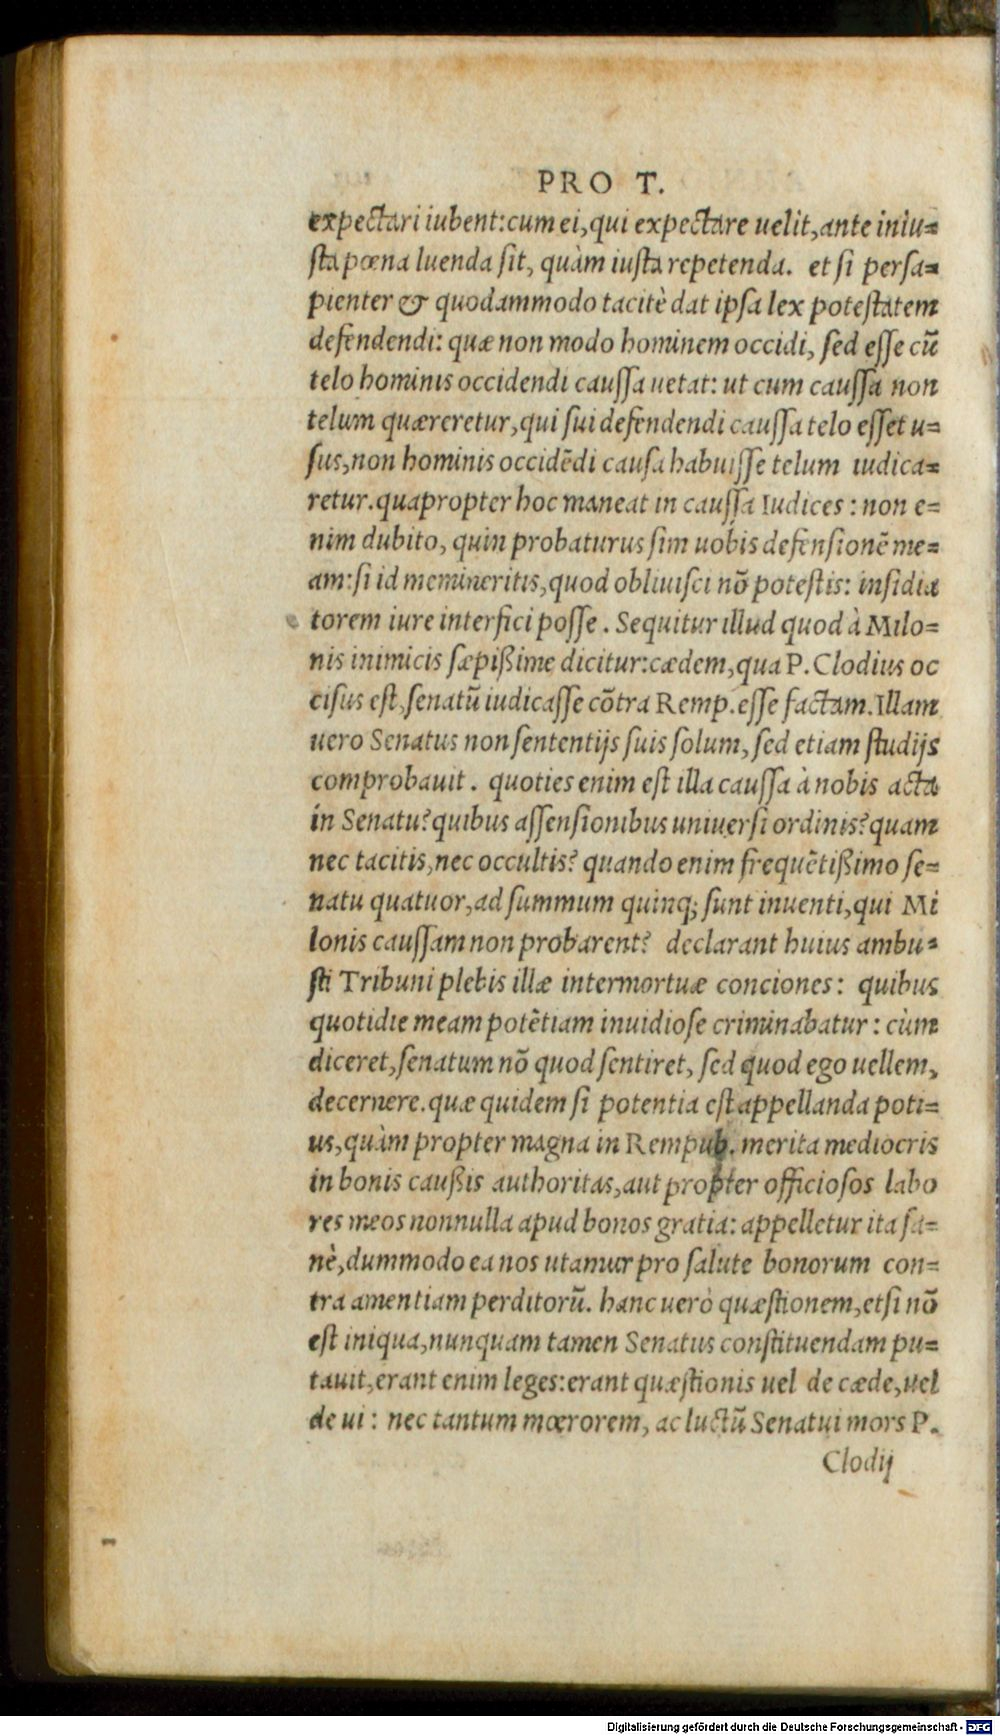 PRO T.
expectari iubent: cum ei, qui expectare uelit, ante iniu=
sta pœna luenda sit, quàm iusta repetenda. et si persa=
pienter & quodammodo tacitè dat ipsa lex potestatem
defendendi: quæ non modo hominem occidi, sed esse cũ
telo hominis occidendi caussa uetat: ut cum caussa non
telum quæreretur, qui sui defendendi caussa telo esset u=
sus, non hominis occidẽdi causa habuisse telum iudica=
retur. quapropter hoc maneat in caussa Iudices: non e=
nim dubito, quin probaturus sim uobis defensionẽ me=
am: si id memineritis, quod obliuisci nõ potestis: insidia
torem iure interfici posse. Sequitur illud quod à Milo=
nis inimicis sæpißime dicitur: cædem, qua P. Clodius oc
cisus est, senatũ iudicasse cõtra Remp. esse factam. Illam
uero Senatus non sententijs suis solum, sed etiam studijs
comprobauit. quoties enim est illa caussa à nobis acta
in Senatu? quibus assensionibus uniuersi ordinis? quam
nec tacitis, nec occultis? quando enim frequẽtißimo se=
natu quatuor, ad summum quinq; sunt inuenti, qui Mi
lonis caussam non probarent? declarant huius ambu=
sti Tribuni plebis illæ intermortuæ conciones: quibus
quotidie meam potẽtiam inuidiose criminabatur: cùm
diceret, senatum nõ quod sentiret, sed quod ego uellem,
decernere. quæ quidem si potentia est appellanda poti=
us, quàm propter magna in Rempub. merita mediocris
in bonis caußis authoritas, aut propter officiosos labo
res meos nonnulla apud bonos gratia: appelletur ita sa=
nè, dummodo ea nos utamur pro salute bonorum con=
tra amentiam perditorũ. hanc uerò quæstionem, etsi nõ
est iniqua, nunquam tamen Senatus constituendam pu=
tauit, erant enim leges: erant quæstionis uel de cæde, uel
de ui: nec tantum mœrorem, ac luctũ Senatui mors P.
Clodij
Digitalisierung gefördert durch die Deutsche Forschungsgemeinschaft - DFG